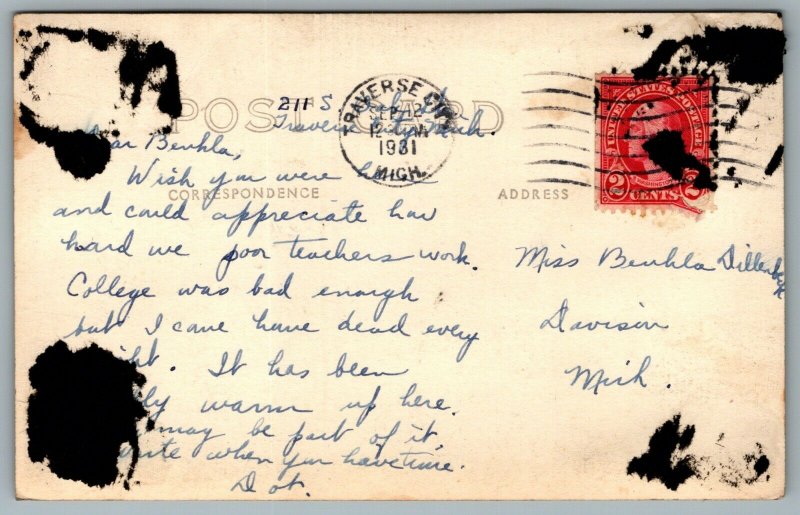 POST CARD
211 S
Traverse City, Mich.
TRAVERSE CITY
SEP 12
1931
MICH.
UNITED STATES POSTAGE
WASHINGTON
2 CENTS 2
Dear Beuhla,
Wish you were here
CORRESPONDENCE
ADDRESS
and could appreciate how
hard we poor teachers work.
College was bad enough
but I came home dead every
It has been
warm up here.
may be part of it.
write when you have time.
Dot.
Miss Beuhla Dillenbeck
Davison
Mich.